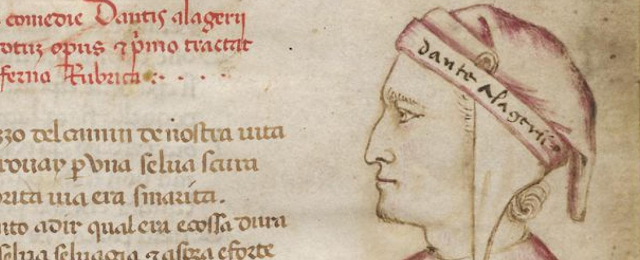 comedie Dantis alagerii
totius opus ⁊ pͥmo tractat
ferno Rubrica
zzo del camin de nostra uita
rouay p una selua scura
rita uia era smarita.
nto a dir qual era e cossa dura
selua seluagia ⁊ aspra e forte
dante alageriis